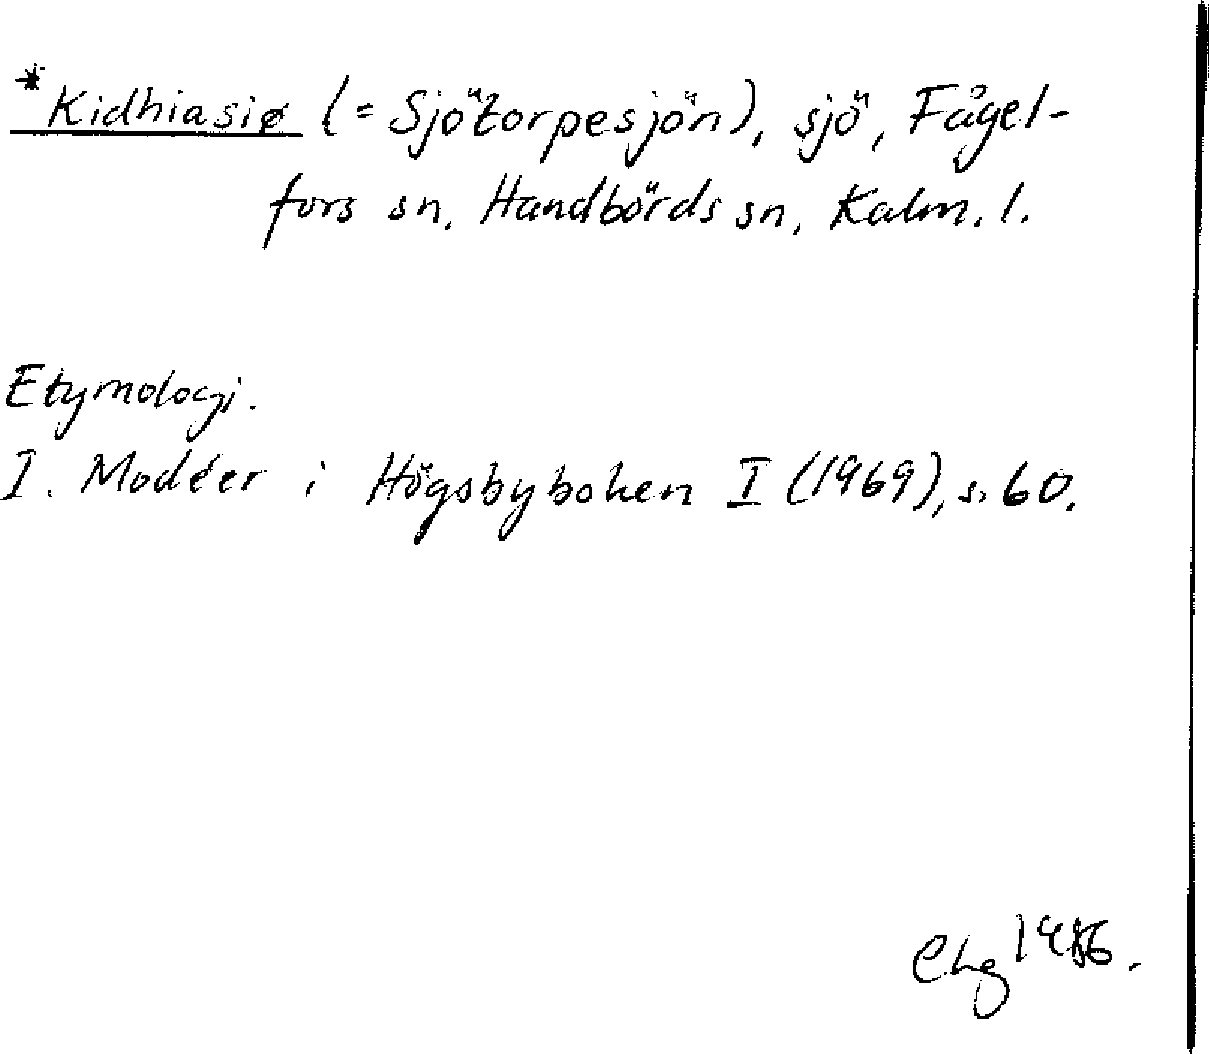 *Kidhiasiø (= Sjötorpesjön), sjö, Fågel-
fors sn, Handbörds sn, Kalm. l.
Etymologi.
I. Modéer i Högsbyboken I (1969), s. 60.
1986.